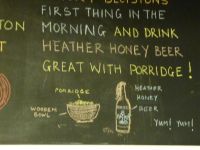 DECISIONS
FIRST THING IN THE
MORNING AND DRINK
HEATHER HONEY BEER
GREAT WITH PORRIDGE!
TON
T
PORRIDGE
WOODEN
BOWL
HEATHER
HONEY
BEER
YUM! YUM!